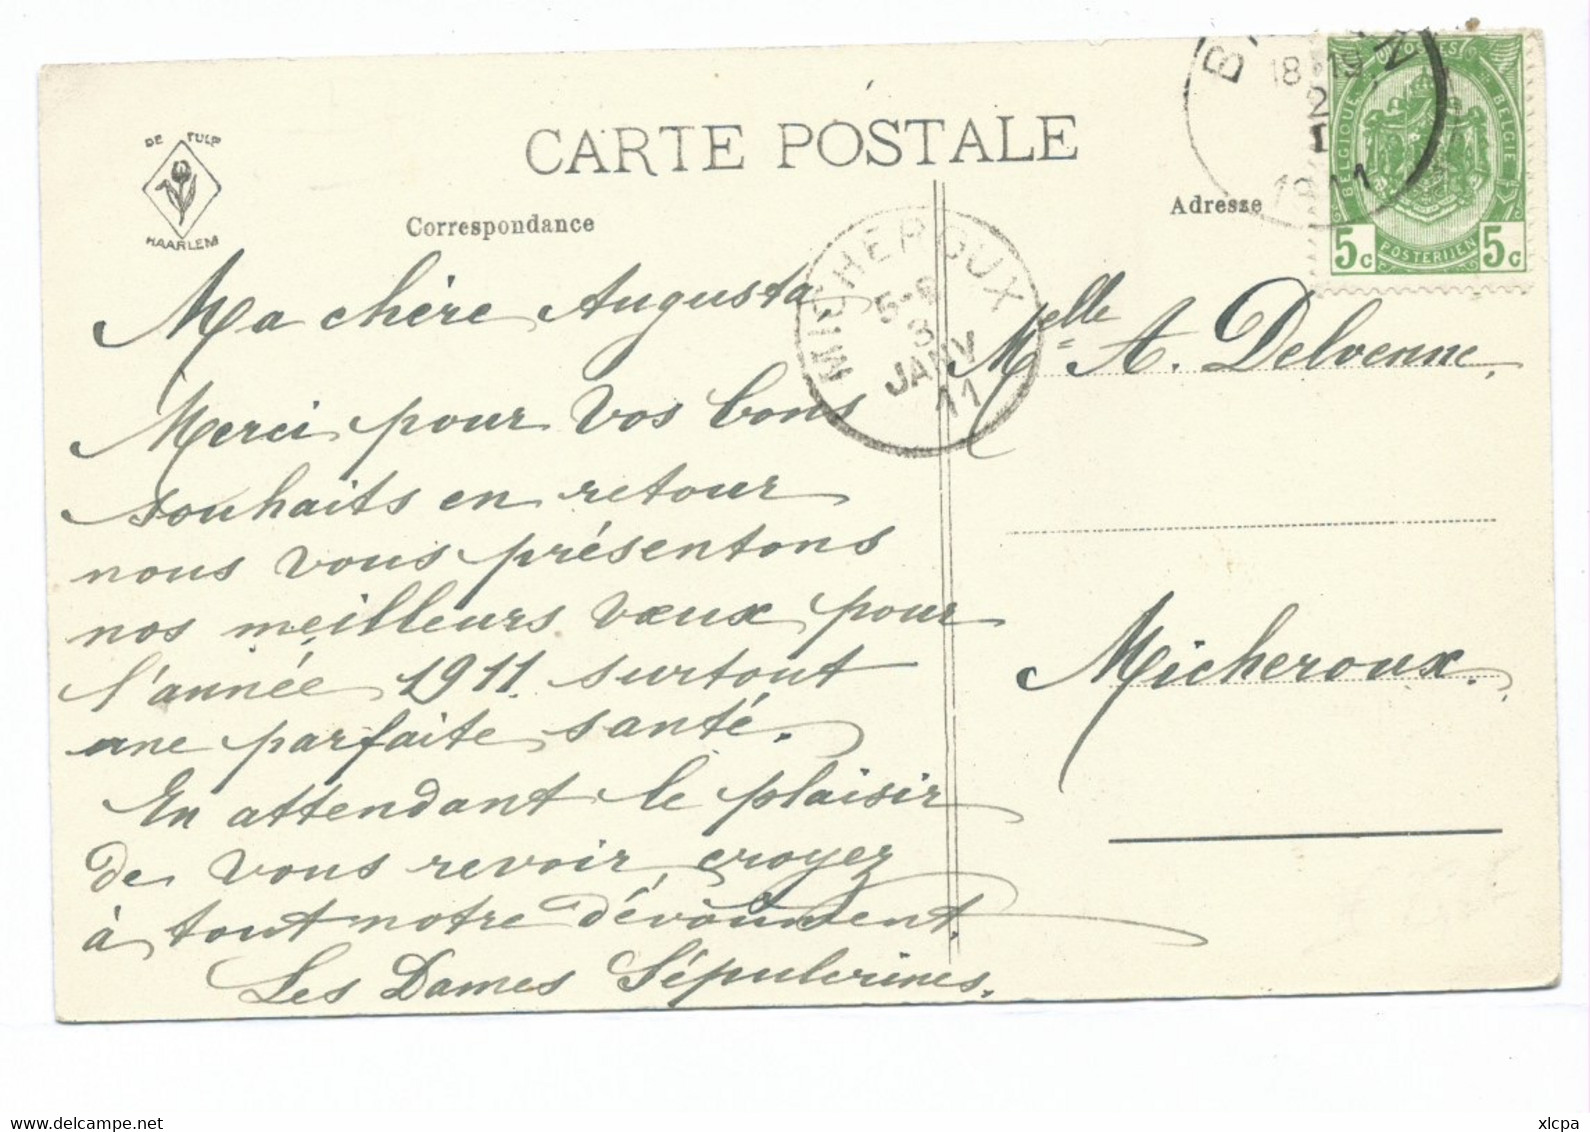 DE TULP
HAARLEM
CARTE POSTALE
Correspondance
Adresse
18 19
2
1
1911
POSTES
BELGIQUE
BELGIE
5c POSTERIJEN 5c
MICHEROUX
3
JANV
11
Ma chère Augusta,
Merci pour vos bons
souhaits en retour
nous vous présentons
nos meilleurs vœux pour
l'année 1911 surtout
une parfaite santé.
En attendant le plaisir
de vous revoir, croyez
à tout notre dévoûment.
Les Dames Sépulcrines.
Melle A. Delvenne.
Micheroux.
www.delcampe.net
xlcpa